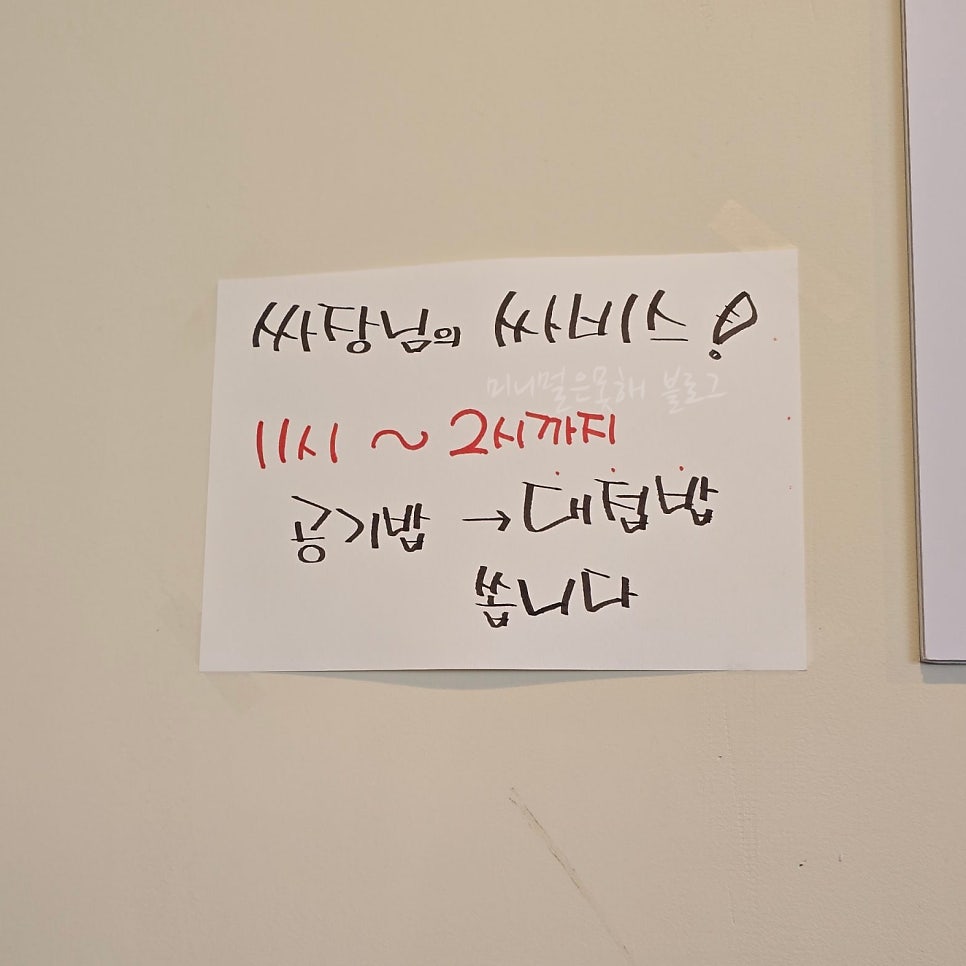 싸장님의 싸비스!
미니멀은못해 블로그
11시 ~ 2시까지
공기밥 → 대접밥
쏩니다